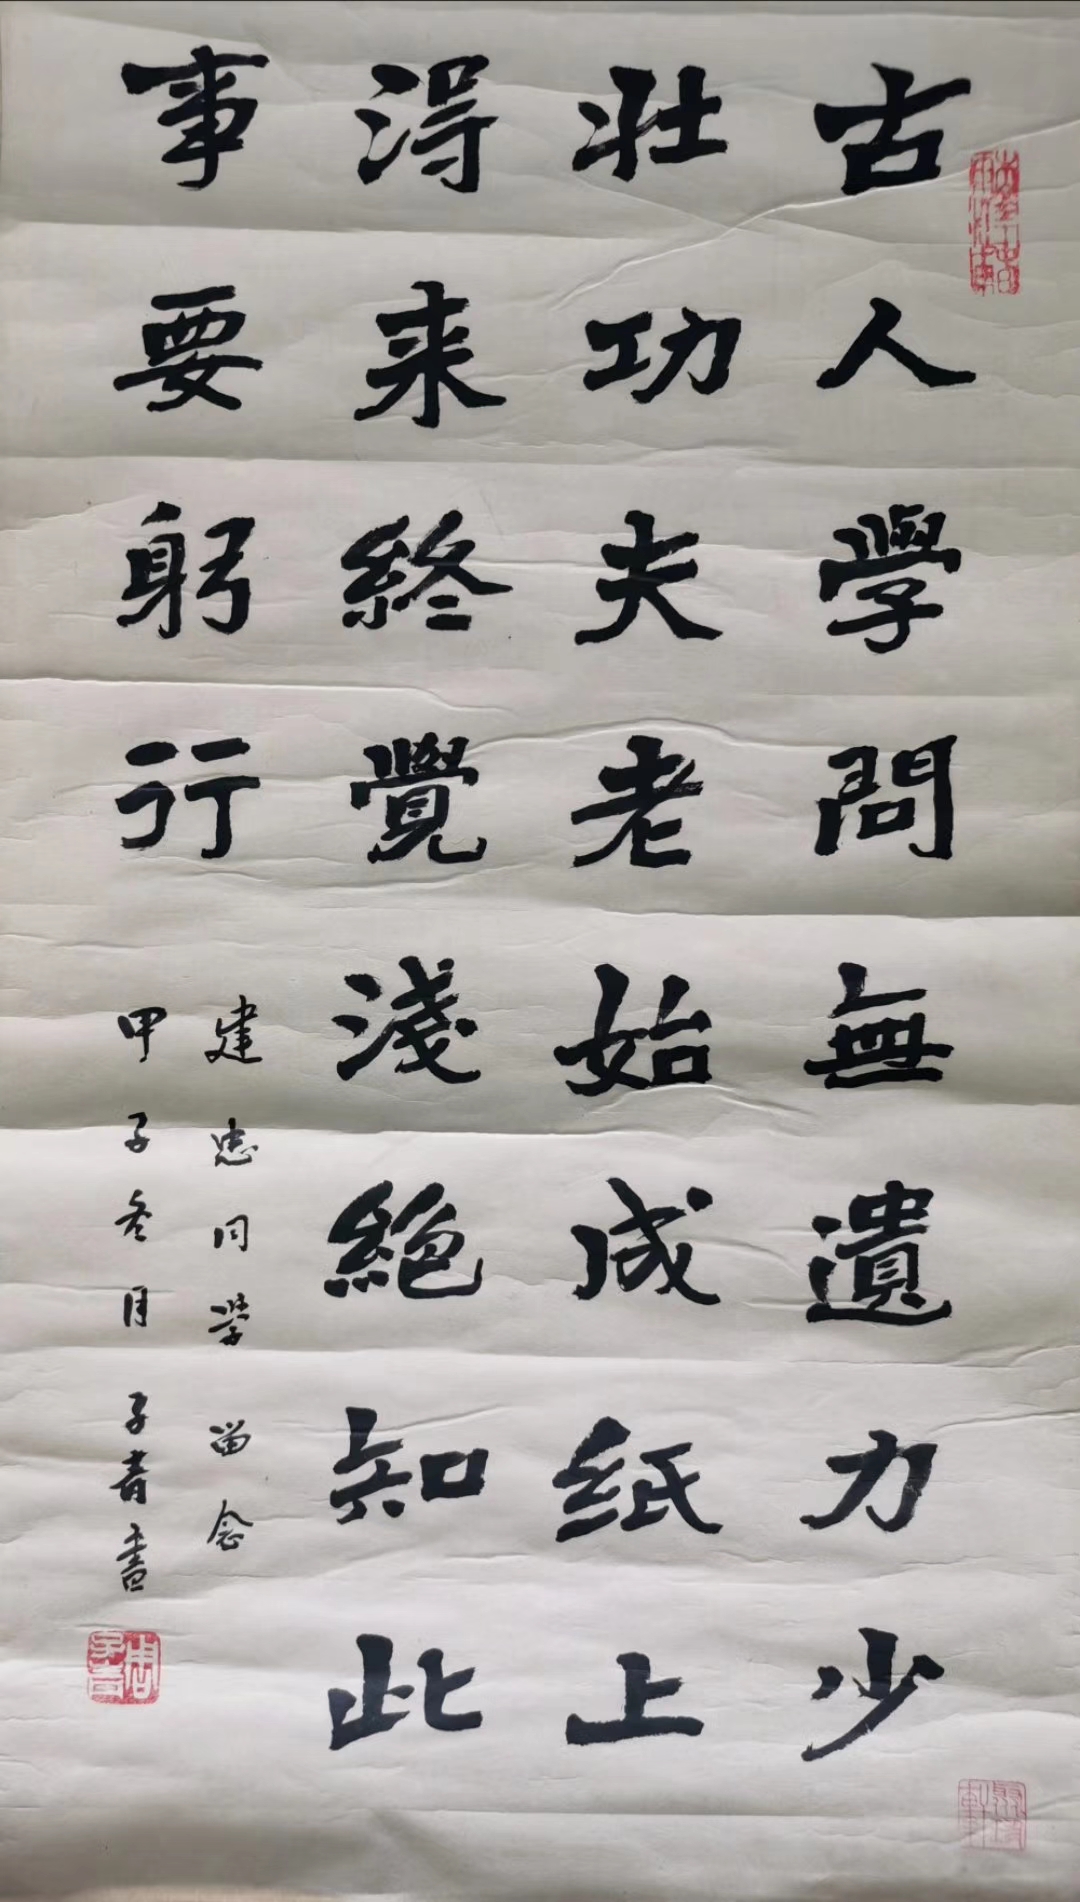 古人學問無遺力少
壯功夫老始成紙上
得来終覺淺絕知此
事要躬行
建忠同学留念
甲子冬月子青書